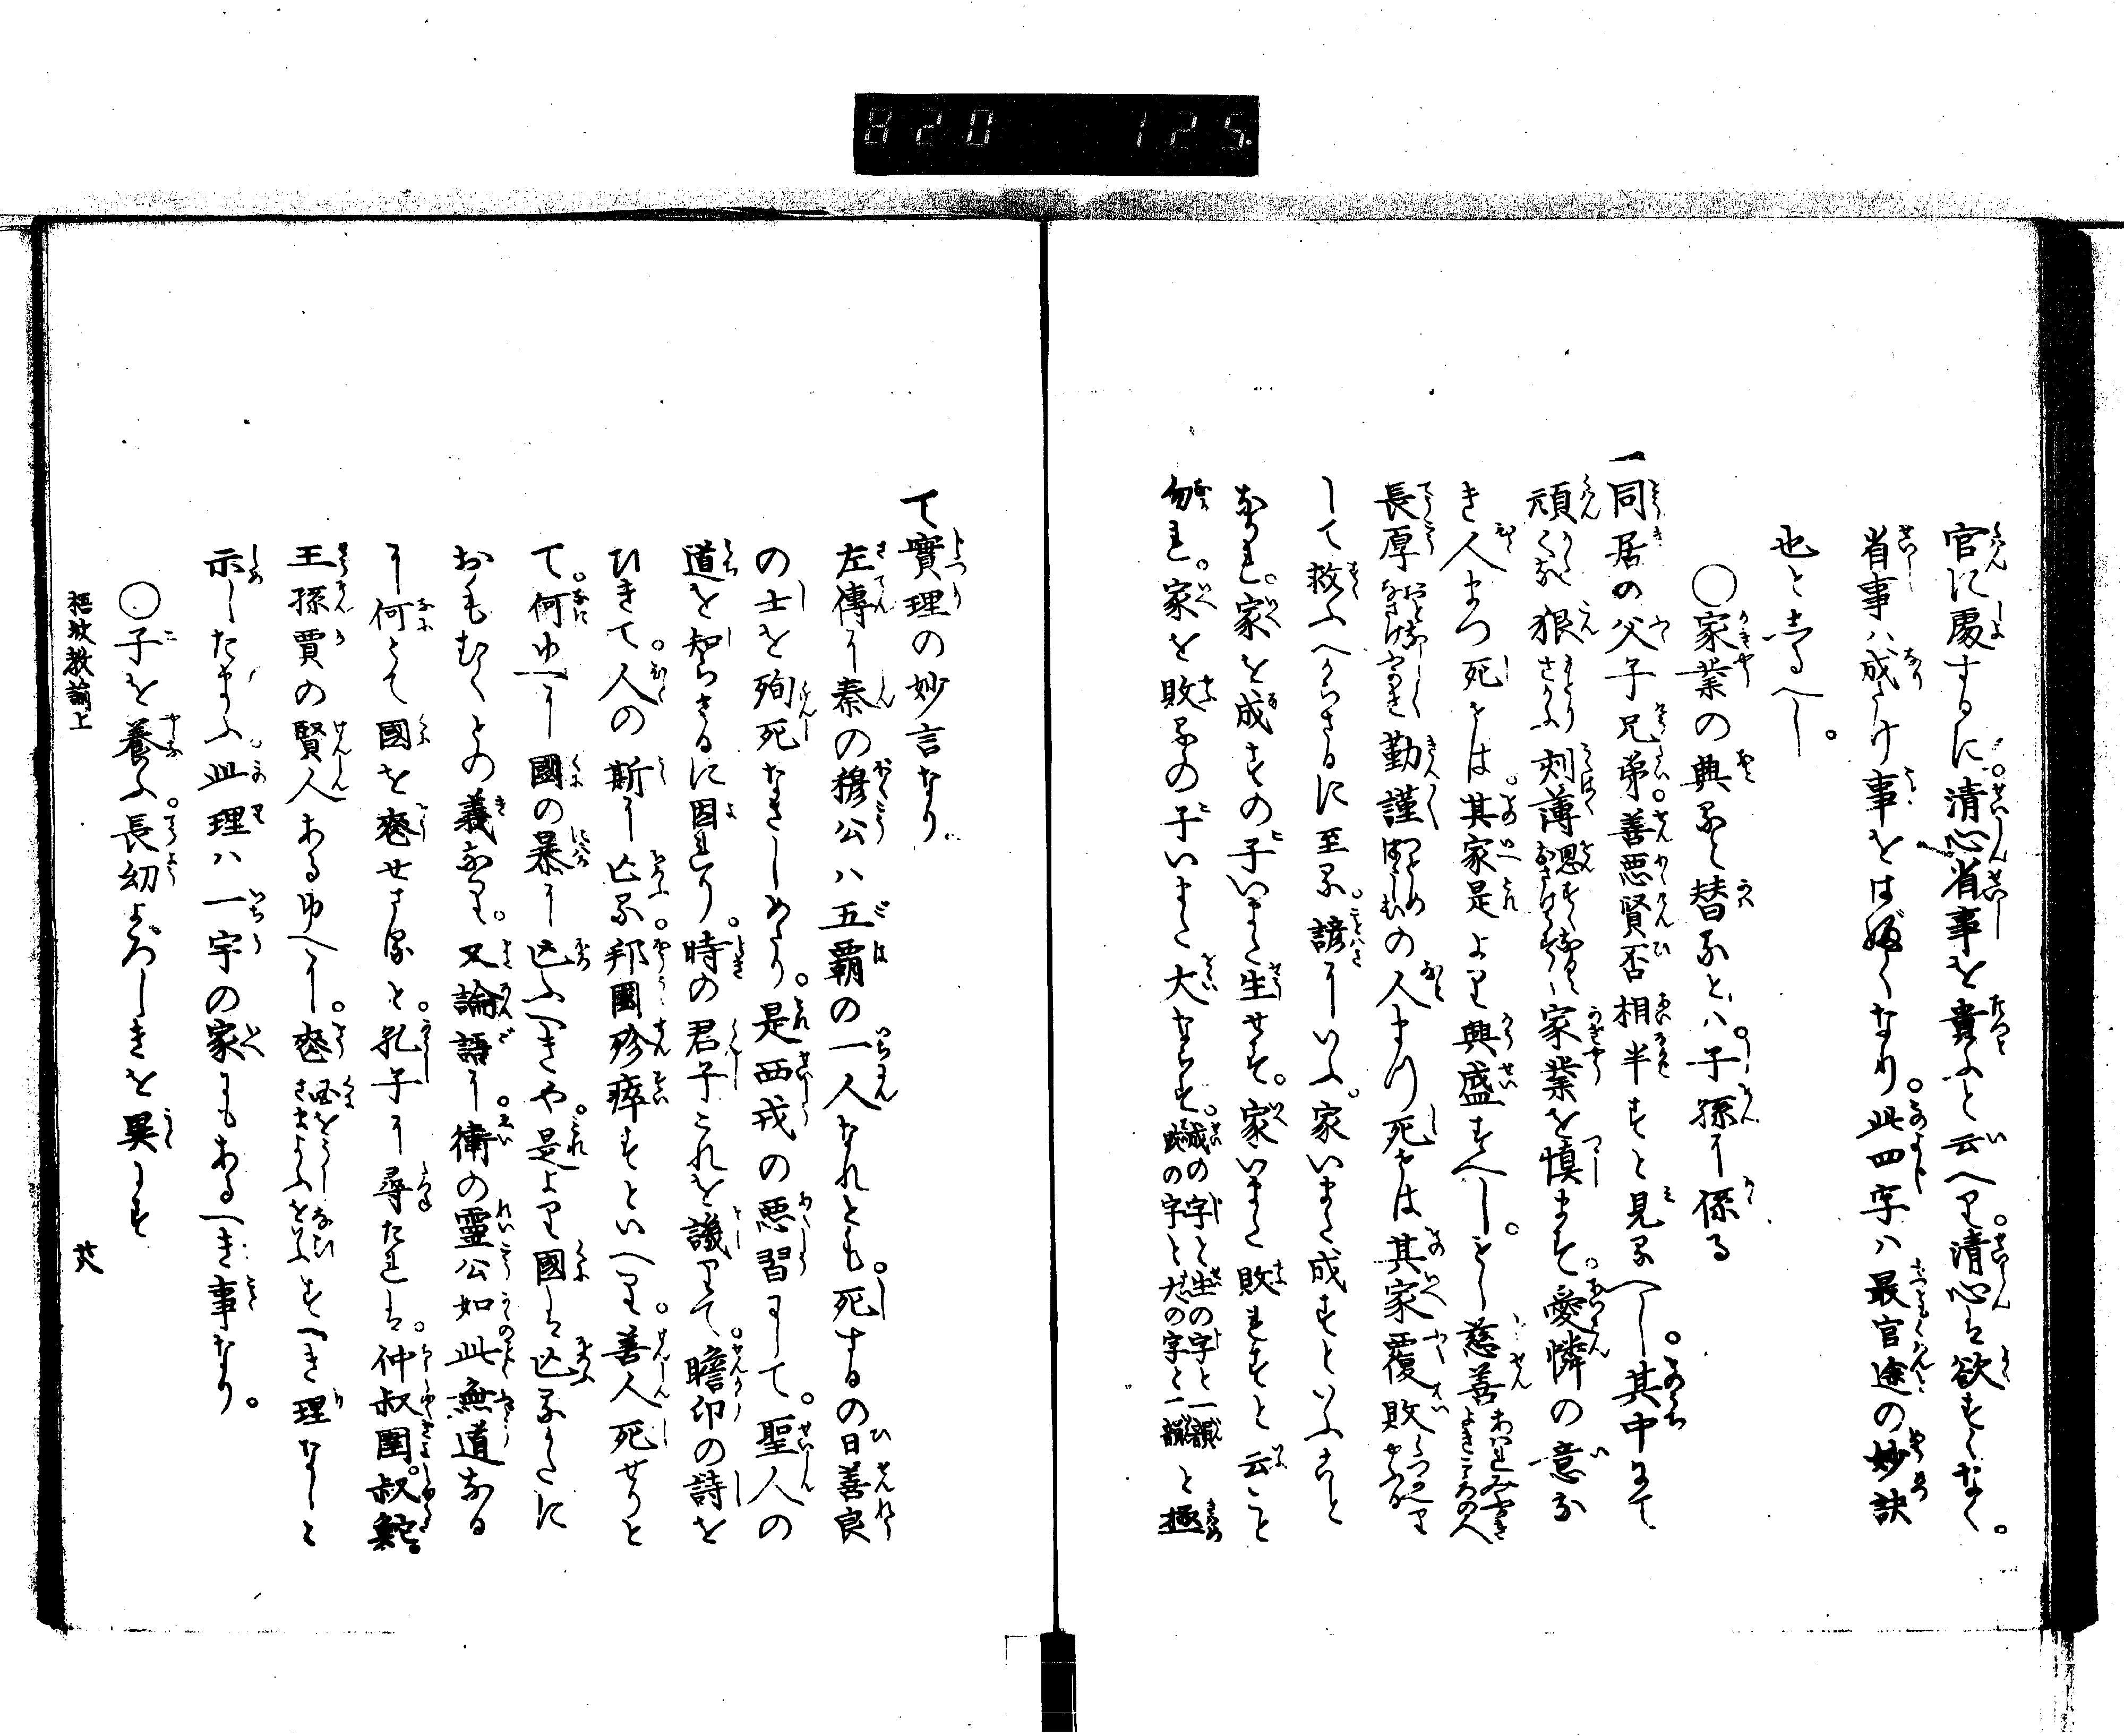 820 125
官に處するに。清心省事を貴ふと云へり。清心は欲すくなく。
省事ハ成たけ事をは省くなり。此四字ハ最官途の妙訣
也と云へし。
○家業の興ると替るとハ。子孫に係る
一同居の父子兄弟。善悪賢否相半すと見るへし。其中にて
頑くな狠さからふ刻薄恩すくなき家業を慎ます。愛憐の意な
き人まつ死せは。其家是より興盛すへし。もし慈善あはれみふかきよきこころの人
長厚おとなしくなさけふかき勤謹つとめはけむの人まつ死せは其家覆敗くつかへりやふる
して救ふへからさるに至る。諺にいふ。家いまた成すといふこと
なかれ。家を成すの子いまた生せす。家いまた敗れすと云こと
勿れ。家を敗るの子いまた大ならす。成の字と生の字と一韻敗の字と大の字と一韻と極
て實理の妙言なり
左傳に秦の穆公ハ五覇の一人なれとも。死するの日善良
の士を殉死なさしめたり。是西戎の悪習にして。聖人の
道を知らさるに因れり。時の君子これを譏りて。瞻卬の詩を
ひきて。人の斯に亡る。邦國殄瘁すといへり。善人死せりと
て。何ゆへに國の暴に亡ふへきや。是より國は亡るかたに
おもむくとの義なり。又論語に。衛の靈公如此無道なる
に何とて國を喪せさると。孔子に尋たれは。仲叔圉。叔鮀。
王孫賈の賢人あるゆへに。喪國をうしなひさまよふをいふすへき理なしと
示したまふ。此理ハ一宇の家にもあるへき事なり。
○子を養ふ。長幼よろしきを異にす
梧坡教諭上 廿八